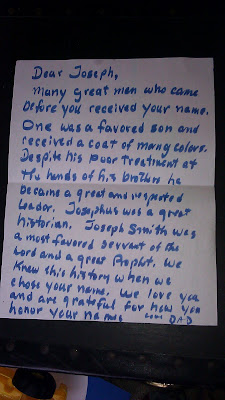 Dear Joseph,
Many great men who came
before you received your name.
One was a favored son and
received a coat of many colors.
Despite his poor treatment at
the hands of his brothers he
became a great and respected
leader. Josephus was a great
historian. Joseph Smith was
a most favored servant of the
Lord and a great Prophet. We
knew this history when we
chose your name. We love you
and are grateful for how you
honor your name. Love DAD